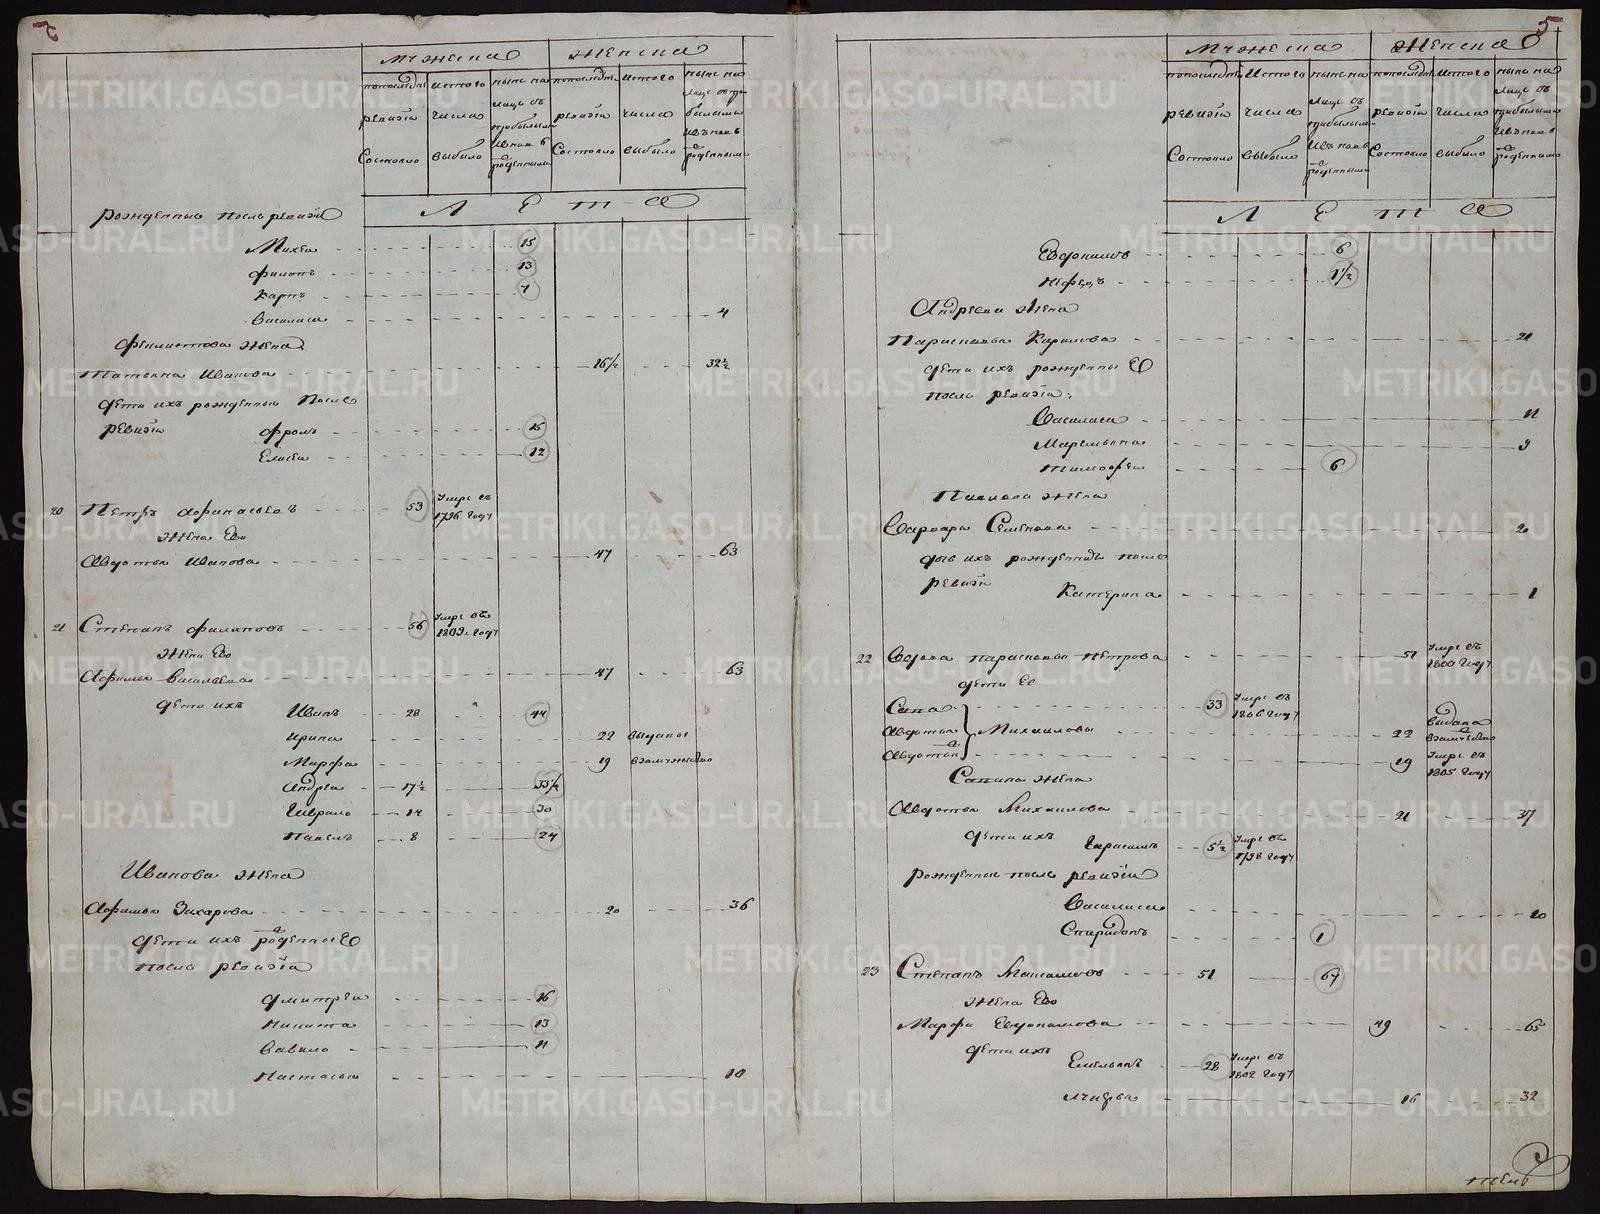 5
мужеска женска
попоследней ревизии состояло
истого числа выбыло
ныне на лице
попоследней ревизии состояло
истого числа выбыло
ныне на лице
Лета
рожденные после ревизии
Михеи 15
филатъ 13
Карпъ 7
Василиса 4
феклистова жена
Татьяна Иванова 16½ 32½
дети ихъ рожденные После
ревизiи фролъ 15
Елисеи 12
20 Петръ Афанасьевъ 53 Умре въ 1796 году
жена Его
Авдотья Иванова 47 63
21 Степанъ филиповъ 56 Умре въ году
жена Его
Афимья Васильева 47 63
дети ихъ Иванъ 28 44
Ирина 22 выданы
Марфа 19 взамужество
Андреи 17½ 33½
Гаврило 14 30
Павелъ 8 24
Иванова жена
Афимья Захарова 20 36
дети ихъ рожденные
после ревизiи
Дмитреи 16
Никита 13
Вавило 11
Настасья 10
5
мужеска женска
попоследней ревизiи состояло
истого числа выбыло
ныне на лице
попоследней ревизiи состояло
истого числа выбыло
ныне на лице
Лета
Евдокимъ 6
1½
Андреева жена
Парасковья Карпова
дети ихъ рожденные
после ревизiи
Василиса 11
Маремьяна 9
Тимофеи 6
Павлова жена
Варвара Семенова 20
дочь ихъ рожденная после
ревизiи
Катерина 1
22 Вдова парасковья Петрова 51 Умре въ 1800 году
дети Ее
Сава 33 Умре въ 1806 году
Авдотья Михаиловы 22 выдана взамужество
Авдотья 19 Умре въ 1805 году
Савина жена
Авдотья Михаилова 21 37
дети ихъ Гарасимъ 5½ Умре въ 1798 году
рожденные после ревизiи
Василиса 10
Спиридонъ 1
23 Степанъ Максимовъ 51 67
жена Его
Марфа Евдокимова 49 65
дети ихъ Емельянъ 28 Умре въ 1802 году
Лукерья 16 32